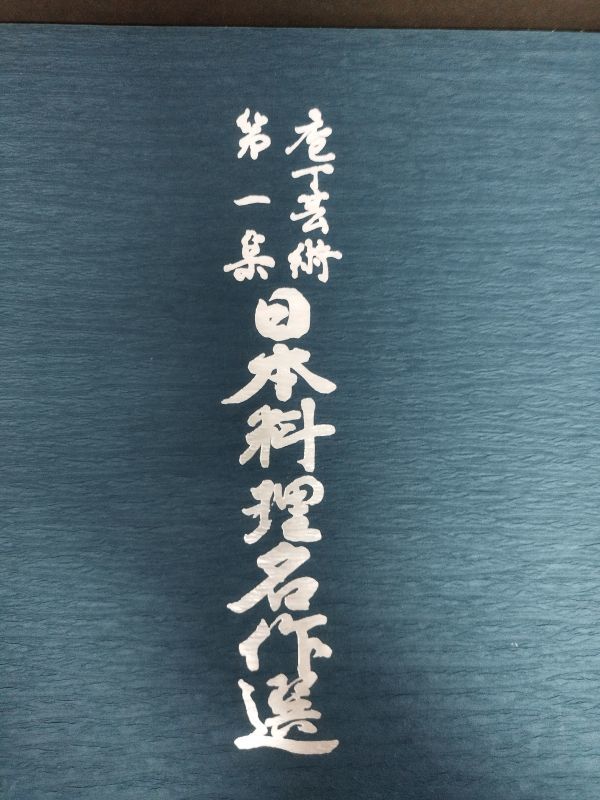 庖丁芸術
第一集
日本料理名作選